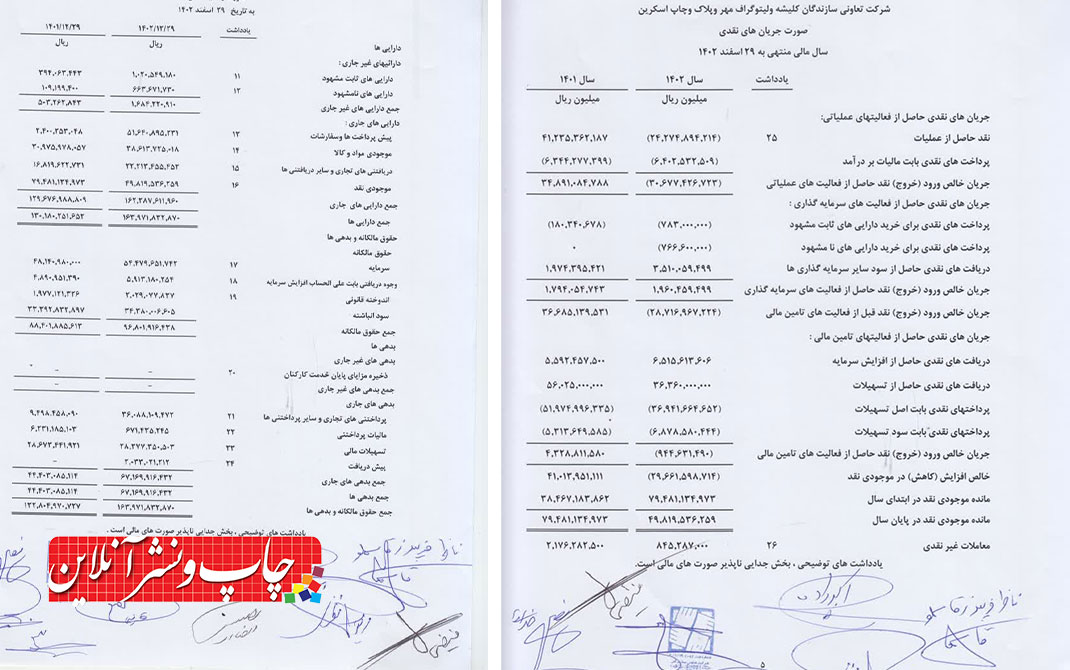 شرکت تعاونی سازندگان کلیشه ولیتوگراف مهر وپلاک وچاپ اسکرین
صورت جریان های نقدی
سال مالی منتهی به ۲۹ اسفند ۱۴۰۲
یادداشت سال ۱۴۰۲ سال ۱۴۰۱
میلیون ریال میلیون ریال
جریان های نقدی حاصل از فعالیتهای عملیاتی:
نقد حاصل از عملیات ۲۵ (۲۴,۲۷۴,۸۹۴,۲۱۴) ۴۱,۲۳۵,۳۶۲,۱۸۷
پرداخت های نقدی بابت مالیات بر درآمد (۶,۴۰۲,۵۳۲,۵۰۹) (۶,۳۴۴,۲۷۷,۳۹۹)
جریان خالص ورود (خروج) نقد حاصل از فعالیت های عملیاتی (۳۰,۶۷۷,۴۲۶,۷۲۳) ۳۴,۸۹۱,۰۸۴,۷۸۸
جریان های نقدی حاصل از فعالیت های سرمایه گذاری :
پرداخت های نقدی برای خرید دارایی های ثابت مشهود (۷۸۳,۰۰۰,۰۰۰) (۱۸۰,۳۴۰,۶۷۸)
پرداخت های نقدی برای خرید دارایی های نا مشهود (۷۶۶,۶۰۰,۰۰۰) ۰
دریافت های نقدی حاصل از سود سایر سرمایه گذاری ها ۳,۵۱۰,۰۵۹,۴۹۹ ۱,۹۷۴,۳۹۵,۴۲۱
جریان خالص ورود (خروج) نقد حاصل از فعالیت های سرمایه گذاری ۱,۹۶۰,۴۵۹,۴۹۹ ۱,۷۹۴,۰۵۴,۷۴۳
جریان خالص ورود (خروج) نقد قبل از فعالیت های تامین مالی (۲۸,۷۱۶,۹۶۷,۲۲۴) ۳۶,۶۸۵,۱۳۹,۵۳۱
جریان های نقدی حاصل از فعالیتهای تامین مالی :
دریافت های نقدی حاصل از افزایش سرمایه ۶,۵۱۵,۶۱۳,۶۰۶ ۵,۵۹۲,۴۵۷,۵۰۰
دریافت های نقدی حاصل از تسهیلات ۳۶,۳۶۰,۰۰۰,۰۰۰ ۵۶,۰۲۵,۰۰۰,۰۰۰
پرداختهای نقدی بابت اصل تسهیلات (۳۶,۹۴۱,۶۶۴,۶۵۲) (۵۱,۹۷۴,۹۹۶,۳۳۵)
پرداختهای نقدی بابت سود تسهیلات (۶,۸۷۸,۵۸۰,۴۴۴) (۵,۳۱۳,۶۴۹,۵۸۵)
جریان خالص ورود (خروج) نقد حاصل از فعالیت های تامین مالی (۹۴۴,۶۳۱,۴۹۰) ۴,۳۲۸,۸۱۱,۵۸۰
خالص افزایش (کاهش) در موجودی نقد (۲۹,۶۶۱,۵۹۸,۷۱۴) ۴۱,۰۱۳,۹۵۱,۱۱۱
مانده موجودی نقد در ابتدای سال ۷۹,۴۸۱,۱۳۴,۹۷۳ ۳۸,۴۶۷,۱۸۳,۸۶۲
مانده موجودی نقد در پایان سال ۴۹,۸۱۹,۵۳۶,۲۵۹ ۷۹,۴۸۱,۱۳۴,۹۷۳
معاملات غیر نقدی ۲۶ ۸۴۵,۲۸۷,۰۰۰ ۲,۱۷۶,۲۸۲,۵۰۰
یادداشت های توضیحی ، بخش جدایی ناپذیر صورت های مالی است.
۵
به تاریخ ۲۹ اسفند ۱۴۰۲
یادداشت ۱۴۰۲/۱۲/۲۹ ۱۴۰۱/۱۲/۲۹
ریال ریال
دارایی ها
دارائیهای غیر جاری :
دارایی های ثابت مشهود ۱۱ ۱,۰۲۰,۵۴۹,۱۸۰ ۳۹۴,۰۶۳,۴۴۳
دارایی های نامشهود ۱۲ ۶۶۳,۶۷۱,۷۳۰ ۱۰۹,۱۹۹,۴۰۰
جمع دارایی های غیر جاری ۱,۶۸۴,۲۲۰,۹۱۰ ۵۰۳,۲۶۲,۸۴۳
دارایی های جاری :
پیش پرداخت ها وسفارشات ۱۳ ۵۱,۶۴۰,۸۹۵,۲۳۱ ۲,۴۰۰,۲۵۳,۰۴۸
موجودی مواد و کالا ۱۴ ۳۸,۶۱۳,۷۲۵,۰۱۸ ۳۰,۹۷۵,۹۷۸,۰۵۷
دریافتنی های تجاری و سایر دریافتنی ها ۱۵ ۲۲,۲۱۳,۴۵۵,۴۵۲ ۱۶,۸۱۹,۶۲۲,۷۳۱
موجودی نقد ۱۶ ۴۹,۸۱۹,۵۳۶,۲۵۹ ۷۹,۴۸۱,۱۳۴,۹۷۳
جمع دارایی های جاری ۱۶۲,۲۸۷,۶۱۱,۹۶۰ ۱۲۹,۶۷۶,۹۸۸,۸۰۹
جمع دارایی ها ۱۶۳,۹۷۱,۸۳۲,۸۷۰ ۱۳۰,۱۸۰,۲۵۱,۶۵۲
حقوق مالکانه و بدهی ها
حقوق مالکانه
سرمایه ۱۷ ۵۴,۴۷۹,۶۵۱,۷۴۲ ۴۸,۱۴۰,۹۸۰,۰۰۰
وجوه دریافتی بابت علی الحساب افزایش سرمایه ۱۸ ۵,۹۱۳,۱۸۰,۲۵۴ ۴,۸۹۰,۹۵۱,۳۹۰
اندوخته قانونی ۱۹ ۲,۰۲۹,۰۷۷,۸۳۷ ۱,۹۷۷,۱۲۱,۳۲۶
سود انباشته ۳۴,۳۸۰,۰۰۶,۶۰۵ ۳۳,۳۹۲,۸۳۲,۸۹۷
جمع حقوق مالکانه ۹۶,۸۰۱,۹۱۶,۴۳۸ ۸۸,۴۰۱,۸۸۵,۶۱۳
بدهی ها
بدهی های غیر جاری :
ذخیره مزایای پایان خدمت کارکنان ۲۰ – –
جمع بدهی های غیر جاری – –
بدهی های جاری
پرداختنی های تجاری و سایر پرداختنی ها ۲۱ ۳۶,۰۸۸,۱۰۹,۴۷۲ ۹,۴۹۸,۴۵۸,۰۹۰
مالیات پرداختنی ۲۲ ۶۷۱,۴۳۵,۲۴۵ ۶,۲۳۱,۱۸۵,۱۰۳
تسهیلات مالی ۲۳ ۲۸,۳۷۷,۳۵۰,۵۰۳ ۲۸,۶۷۳,۴۴۱,۹۲۱
پیش دریافت ۲۴ ۲,۰۳۳,۰۲۱,۲۱۲ –
جمع بدهی های جاری ۶۷,۱۶۹,۹۱۶,۴۳۲ ۴۴,۴۰۳,۰۸۵,۱۱۴
جمع بدهی ها ۶۷,۱۶۹,۹۱۶,۴۳۲ ۴۴,۴۰۳,۰۸۵,۱۱۴
جمع حقوق مالکانه و بدهی ها ۱۶۳,۹۷۱,۸۳۲,۸۷۰ ۱۳۲,۸۰۴,۹۷۰,۷۲۷
یادداشت های توضیحی ، بخش جدایی ناپذیر صورت های مالی است .
چاپ و نشر آنلاین